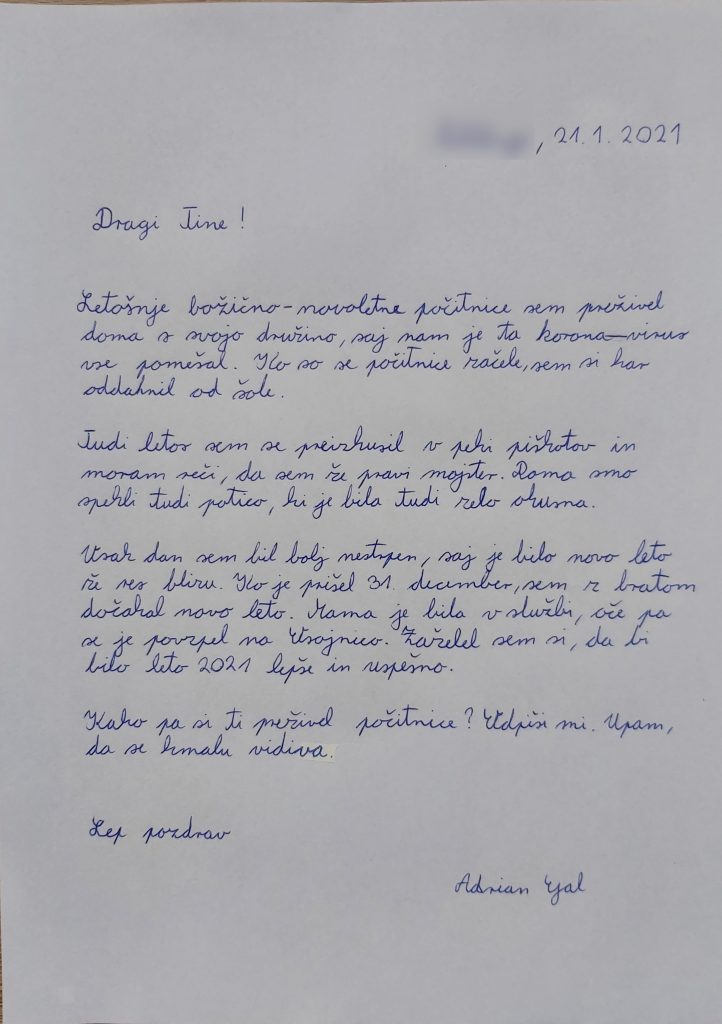 , 21. 1. 2021
Dragi Tine!
Letošnje božično-novoletne počitnice sem preživel
doma s svojo družino, saj nam je ta korona-virus
vse pomešal. Ko so se počitnice začele, sem si kar
oddahnil od šole.
Tudi letos sem se preizkusil v peki piškotov in
moram reči, da sem že pravi mojster. Doma smo
spekli tudi potico, ki je bila tudi zelo okusna.
Vsak dan sem bil bolj nestrpen, saj je bilo novo leto
že res blizu. Ko je prišel 31. december, sem z bratom
dočakal novo leto. Mama je bila v službi, oče pa
se je povzpel na Vsojnico. Zaželel sem si, da bi
bilo leto 2021 lepše in uspešno.
Kako pa si ti preživel počitnice? Odpiši mi. Upam,
da se kmalu vidiva.
Lep pozdrav
Adrian